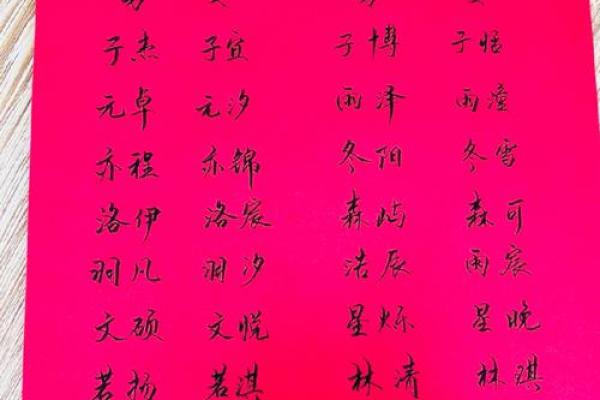 子杰 子宜 子博 子恬
元卓 元汐 雨泽 雨潼
亦程 亦锦 冬阳 冬雪
洛伊 洛宸 森屿 森可
羽凡 羽汐 浩辰 雨宸
文硕 文悦 星烁 星晚
若扬 若淇 林清 林琪